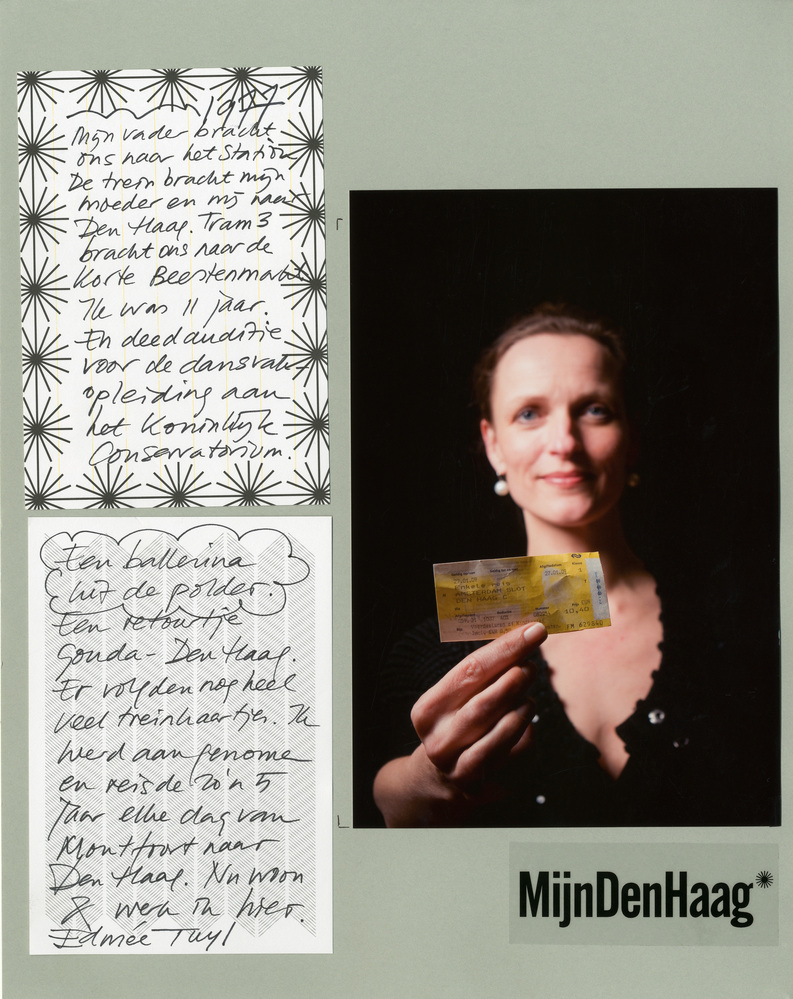 1977
Mijn vader bracht
ons naar het Station
De trein bracht mijn
moeder en mij naar
Den Haag. Tram 3
bracht ons naar de
Korte Beestenmarkt
Ik was 11 jaar.
En deed auditie
voor de dansvak-
opleiding aan
het Koninklijk
Conservatorium.
Een ballerina
uit de polder.
Een retourtje
Gouda - Den Haag.
Er volgden nog heel
veel treinkaartjes. Ik
werd aangenome
en reisde zo'n 5
jaar elke dag van
Montfoort naar
Den Haag. Nu woon
& werk ik hier.
Edmée Tuyl
Enkele reis
AMSTERDAM SLOT
DEN HAAG C
10,40
MijnDenHaag